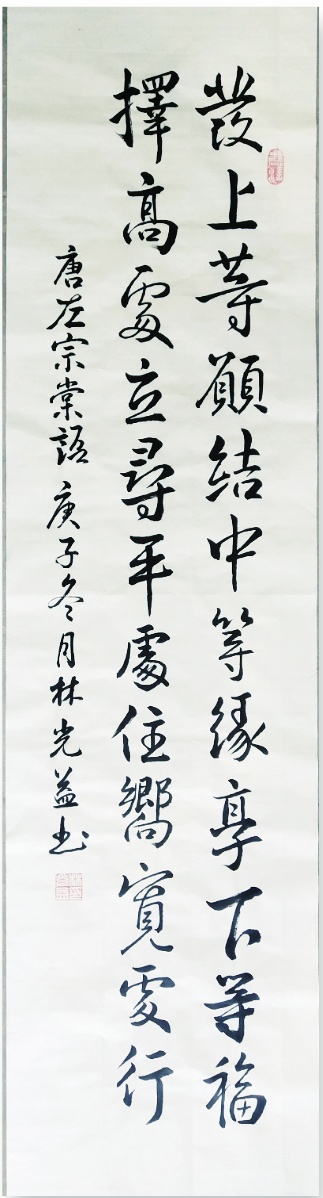 發上等願結中等緣享下等福
擇高處立尋平處住嚮寬處行
唐左宗棠語 庚子冬月林光益书